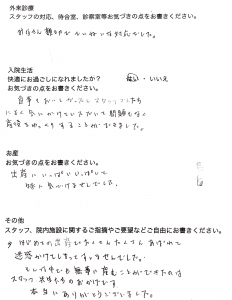 外来診療
スタッフの対応、待合室、診察室等お気づきの点をお書きください。
みなさん親切でていねいな対応でした。
入院生活
快適にお過ごしになれましたか? はい・いいえ
お気づきの点をお書きください。
食事もおいしかったし、スタッフさんたち
にもよく気にかけていただいて問題もなく
育児をゆっくりすることができました。
お産
お気づきの点をお書きください。
出産にいっぱいいっぱいで
特に気づけませんでした。
その他
スタッフ、院内施設に関するご指摘やご要望などご自由にお書きください。
はじめての出産でたくさんたくさんあばれて
迷惑かけてしまってすいませんでした。
そんな中でも無事に産むことができたのは
スタッフ のおかげです
本当にありがとうございました。